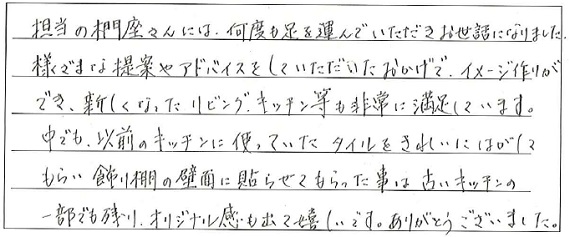 担当の棡座さんには、何度も足を運んでいただきお世話になりました。
様々な提案やアドバイスをしていただいたおかげで、イメージ作りが
でき、新しくなったリビング、キッチン等も非常に満足しています。
中でも、以前のキッチンに使っていたタイルをきれいにはがして
もらい飾り棚の壁面に貼らせてもらった事は古いキッチンの
一部でも残り、オリジナル感も出て嬉しいです。ありがとうございました。